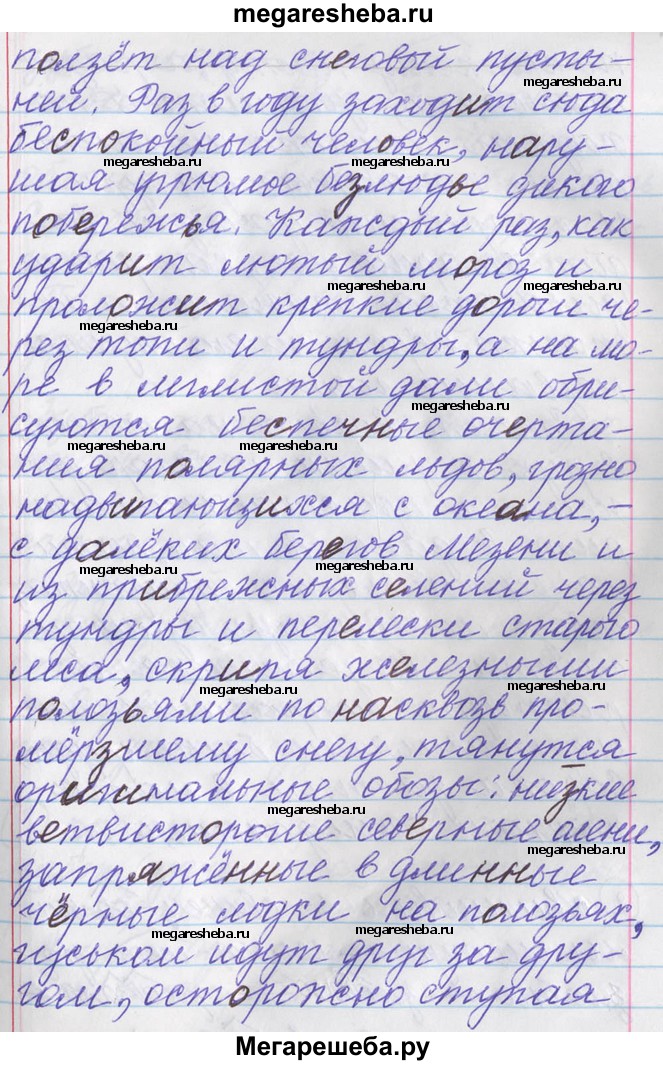 megaresheba.ru
ползёт над снеговый пусты-
megaresheba.ru
ней. Раз в году заходит сюда
беспокойный человек, нару-
megaresheba.ru megaresheba.ru
шая угрюмое безлюдье дикого
побережья. Каждый раз, как
megaresheba.ru megaresheba.ru
ударит лютый мороз и
megaresheba.ru
проложит крепкие дороги че-
megaresheba.ru
рез топи и тундры, а на мо-
ре в мглистой дали обри-
megaresheba.ru
суются беспечные очерта-
megaresheba.ru megaresheba.ru
ния полярных льдов, грозно
надвигающихся с океана, –
с далёких берегов Мезени и
megaresheba.ru megaresheba.ru
из прибрежных селений через
тундры и перелески старого
леса, скрипя железными
megaresheba.ru megaresheba.ru
полозьями по насквозь про-
мёрзшему снегу, тянутся
оригинальные обозы: низкие
megaresheba.ru
ветвисторогие северные олени,
megaresheba.ru
запряжённые в длинные
чёрные лодки на полозьях,
megaresheba.ru megaresheba.ru
гуськом идут друг за дру-
гом, осторожно ступая
Мегарешеба.ру